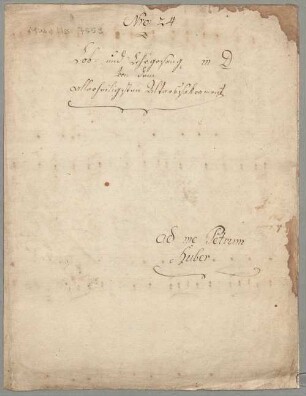 No 24
Lob und Ehrgesang in D
Von dem
Allerheiligsten Altarssakrament
Ad me Petrum
Huber